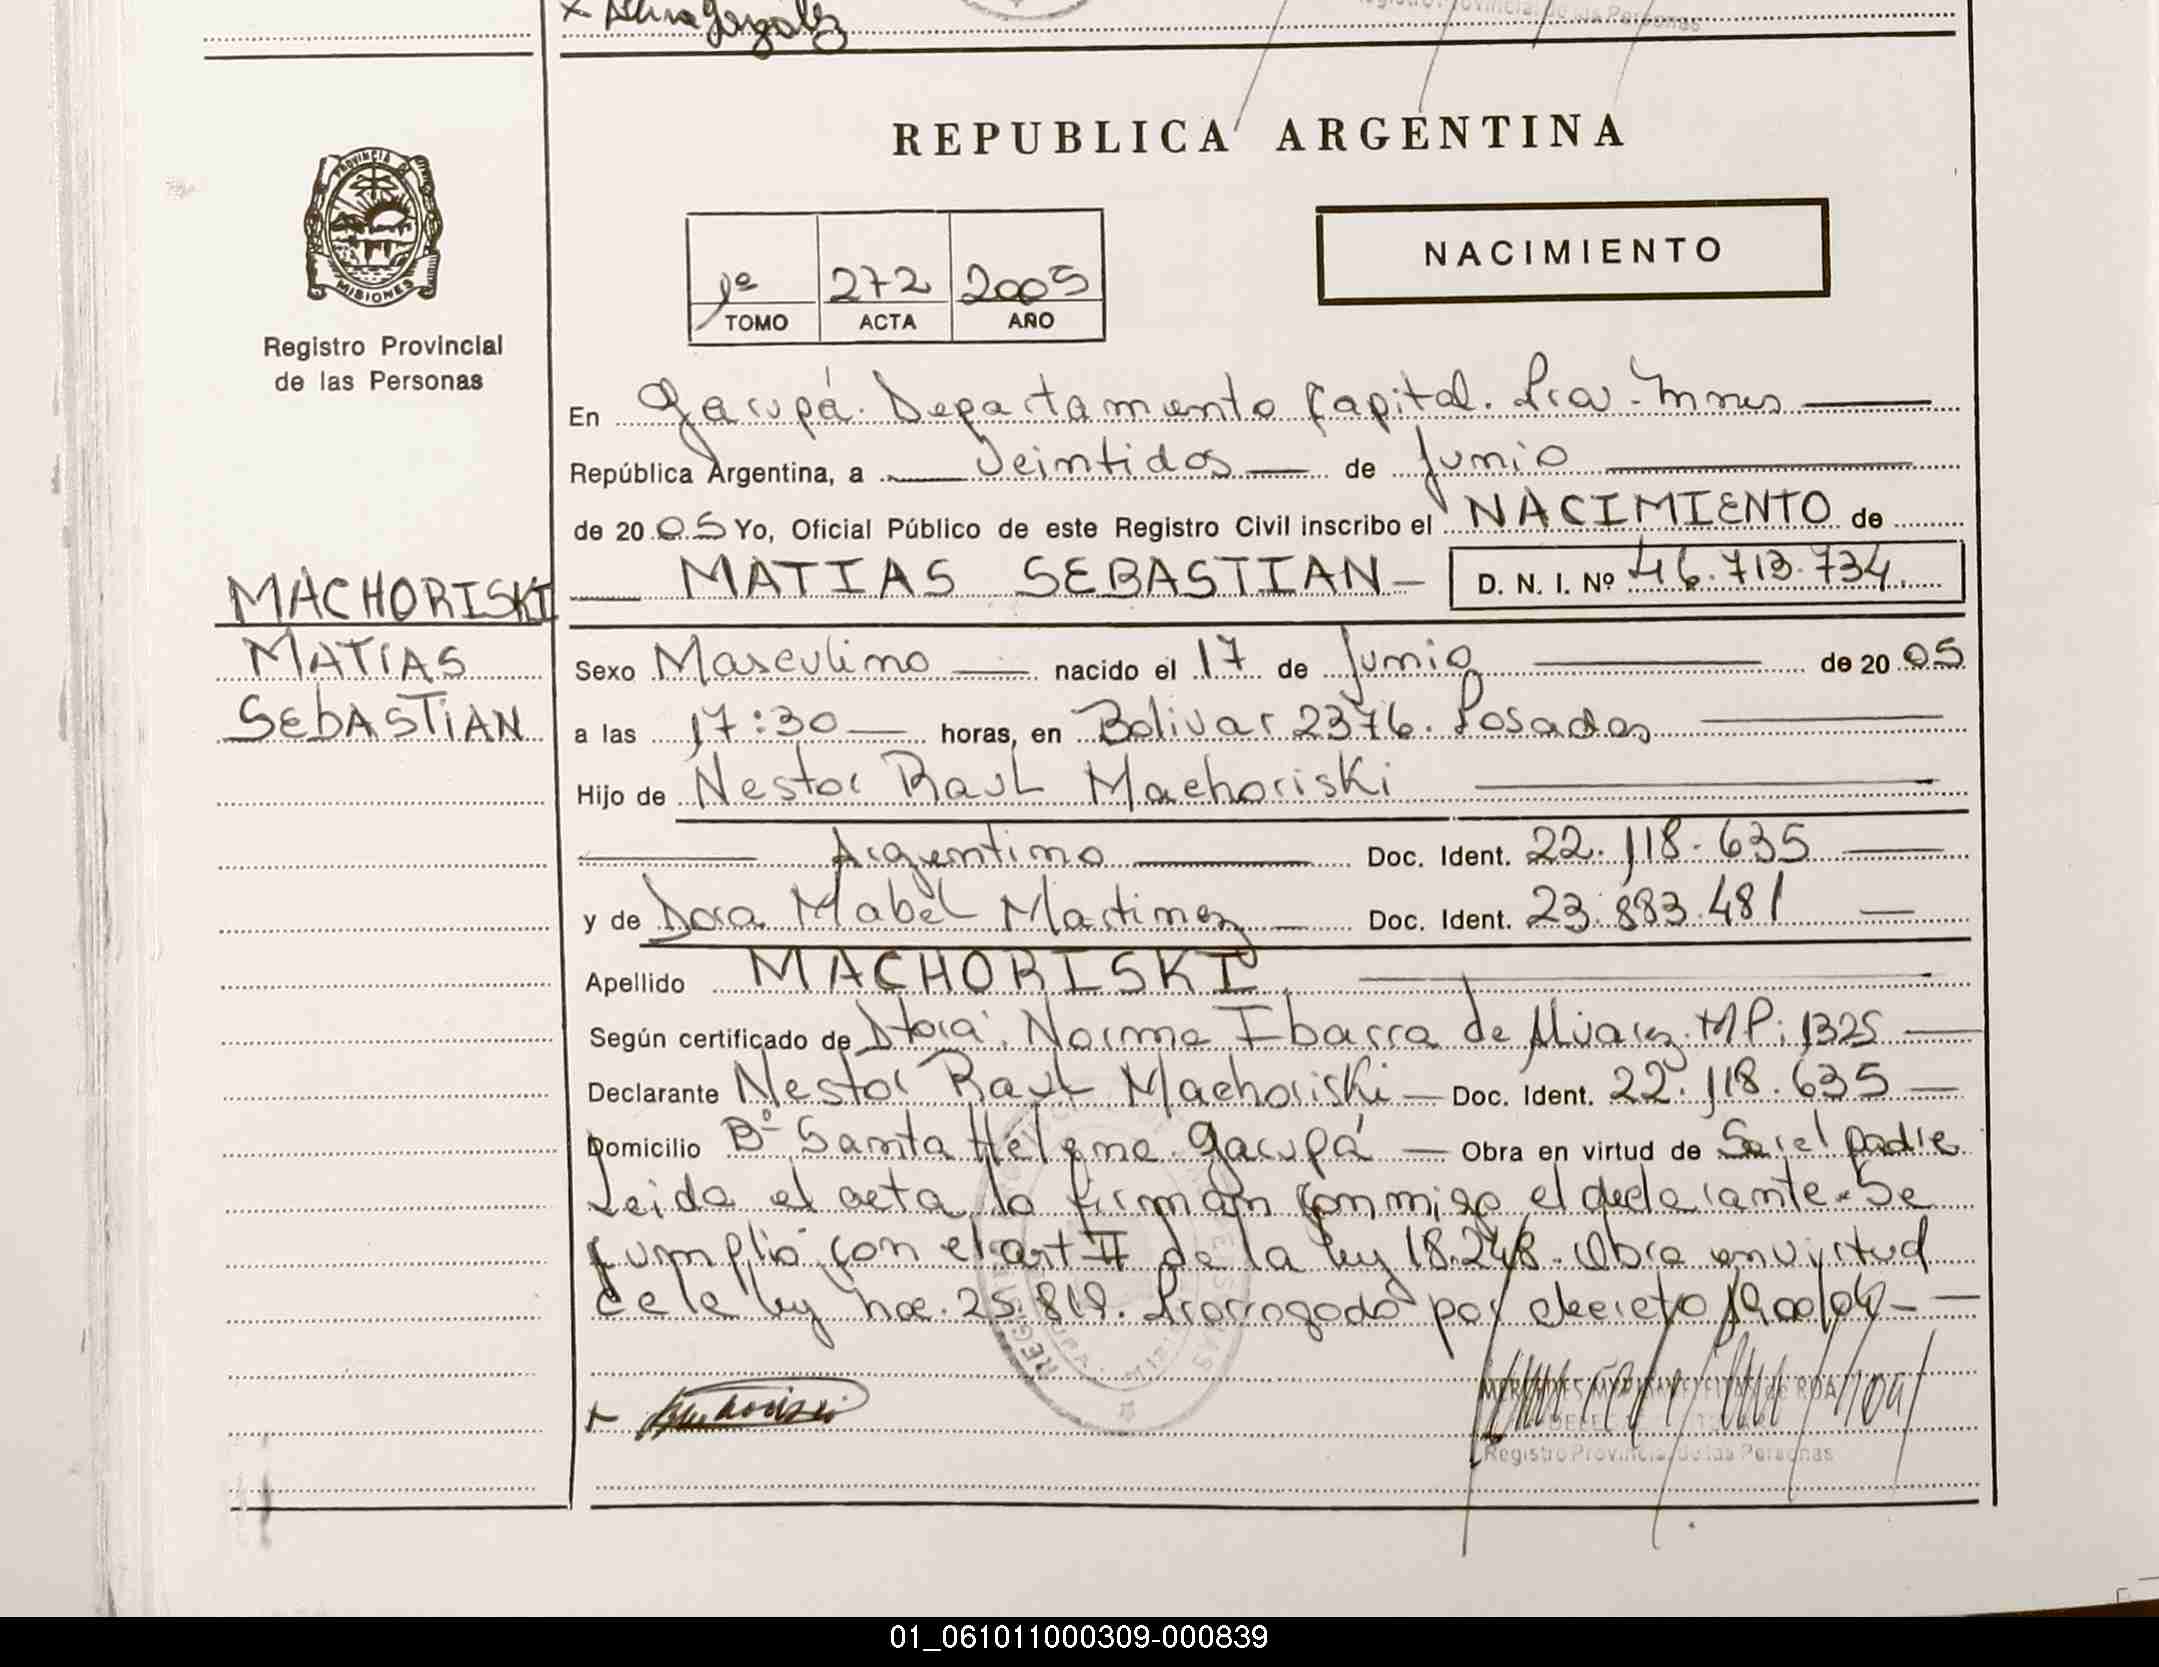 x
Registro Provincial de las Personas
REPUBLICA ARGENTINA
PROVINCIA DE
MISIONES
Registro Provincial
de las Personas
NACIMIENTO
1º 272 2005
TOMO ACTA AÑO
En Garupá. Departamento Capital. Prov. Mnes
República Argentina, a veintidos de Junio
de 2005 Yo, Oficial Público de este Registro Civil inscribo el NACIMIENTO de
MATIAS SEBASTIAN D. N. I. Nº 46.713.734
MACHORISKI
MATIAS
SEBASTIAN
Sexo Masculino nacido el 17 de Junio de 2005
a las 17:30 horas, en Bolivar 2376. Posadas
Hijo de Nestor Raul Machoriski
Argentino Doc. Ident. 22.118.635
y de Dora Mabel Martinez Doc. Ident. 23.883.481
Apellido MACHORISKI
Según certificado de Dtora. Norma Ibarra de Alvarez. MP: 1325
Declarante Nestor Raul Machoriski Doc. Ident. 22.118.635
Domicilio Bº Santa Helena. Garupá Obra en virtud de Ser el padre
Leida el acta, la firman conmigo el declarante. Se
cumplió con el art II de la ley 18.248. Obra en virtud
de la ley nac. 25.819. Prorrogado por decreto 1900/04
REGISTRO
Registro Provincial de las Personas
01_061011000309-000839